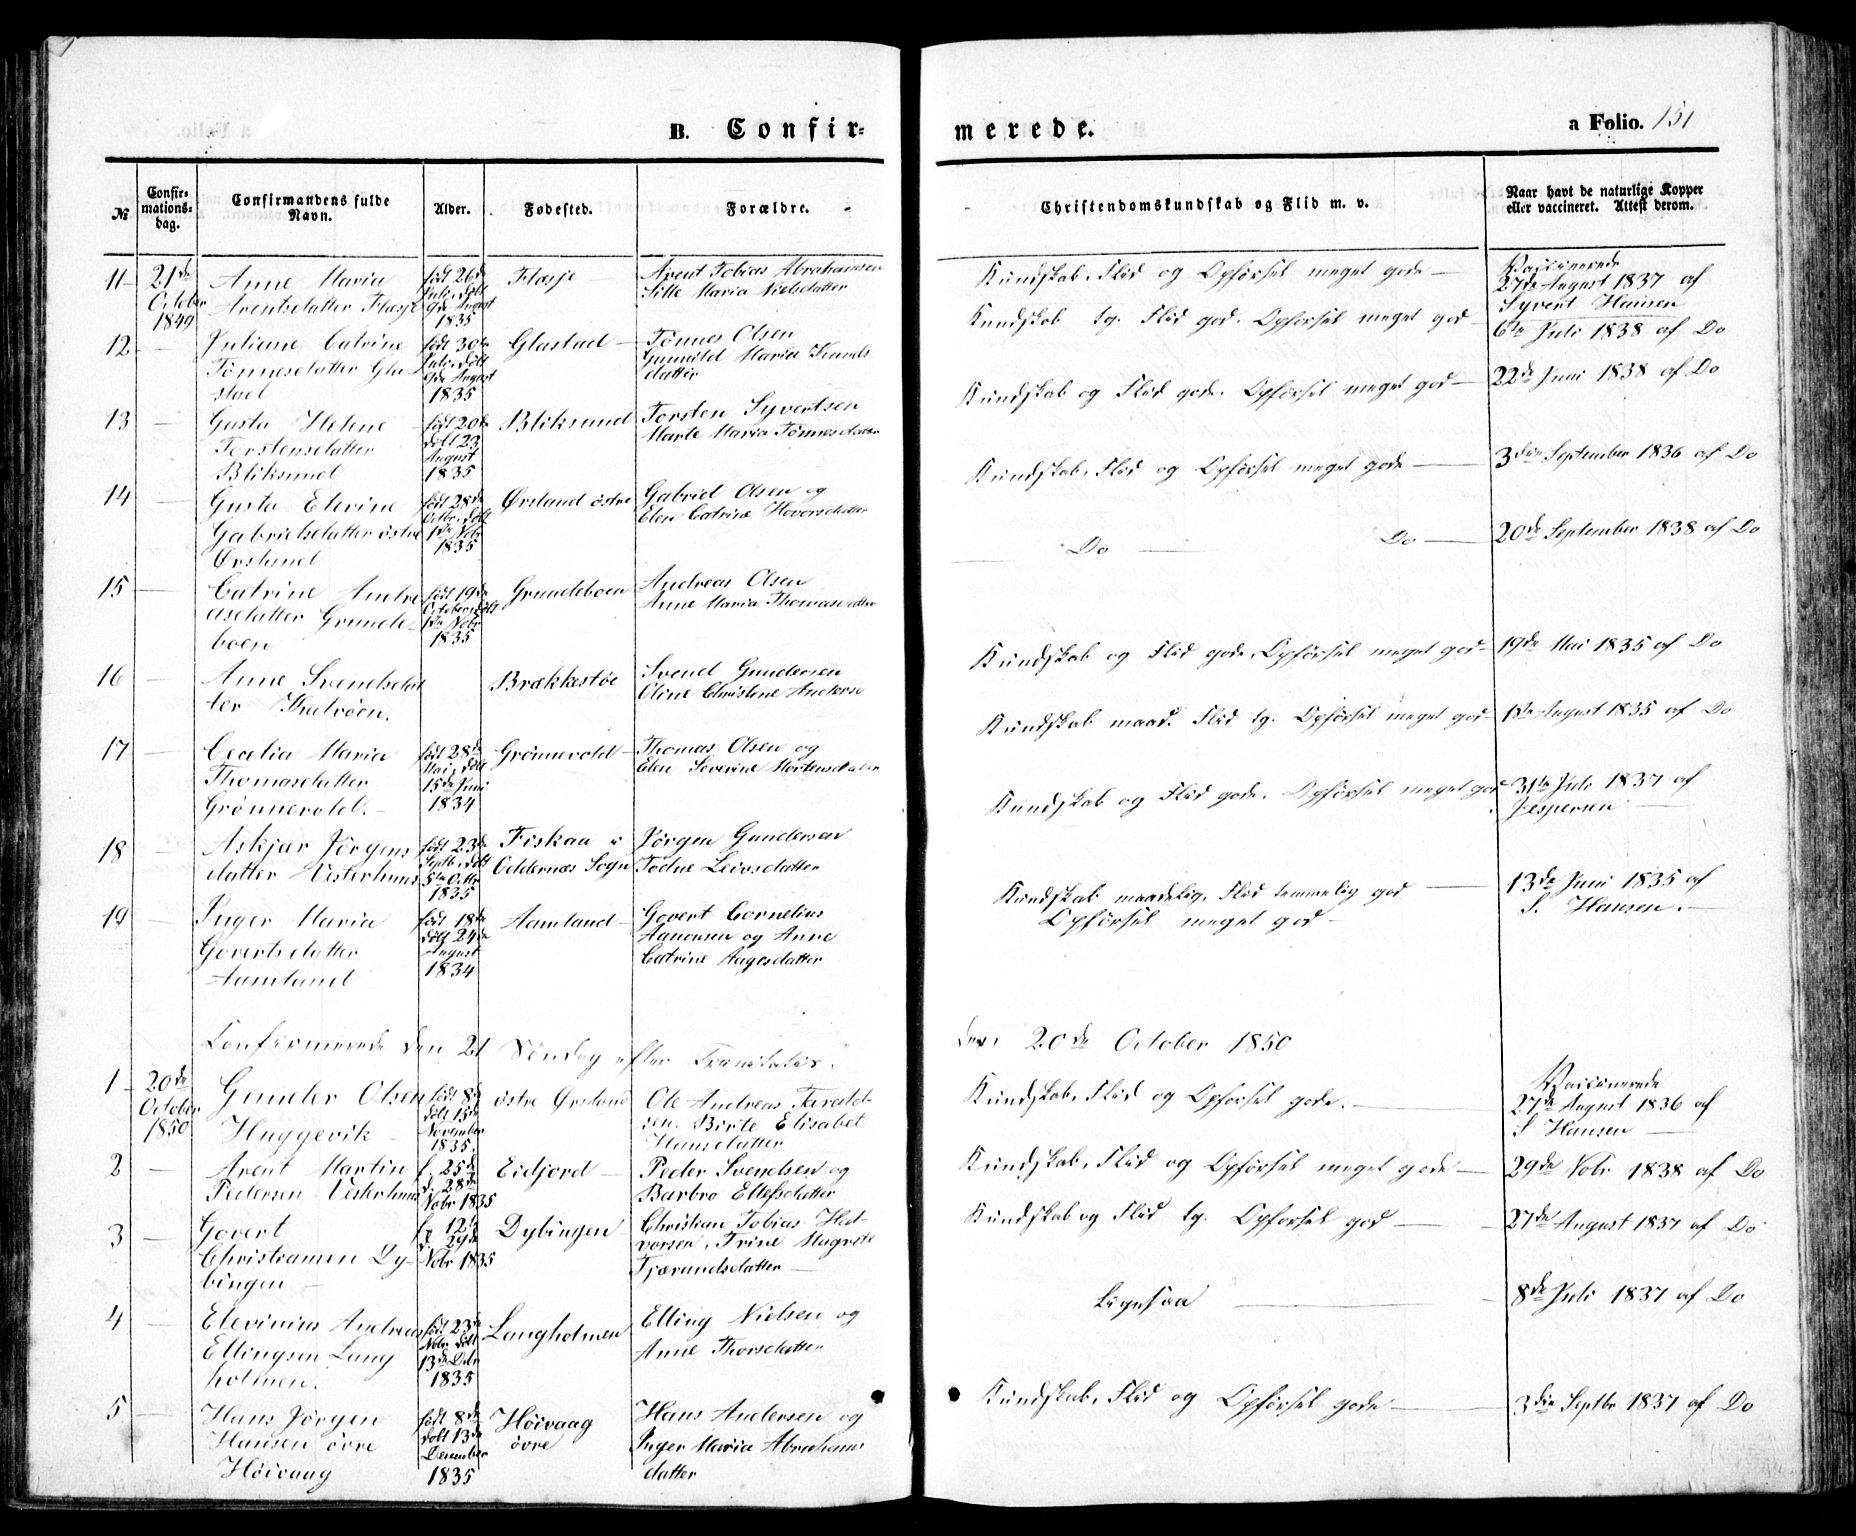 B. Confir=
merede.
a Folio. 151
№
Confir=
mations=
dag.
Confirmandens fulde
Navn.
Alder.
Fødested.
Forældre.
Christendomskundskab og Flid m. v.
Naar havt de naturlige Kopper
eller vaccineret. Attest derom.
11 21de
October
1849
Anne Maria
Arentsdatter Flæsje
født 26de
Juli, døbt
9de August
1835
Flæsje
Arent Tobias Abrahamsen
Sille Maria Nielsdatter
Kundskab, Flid og Opførsel meget gode
Vaccinerede
27de August 1837 af
Syvert Hansen
12
Juliane Catrine
Tønnesdatter Gla-
stad
født 30te
Juli, døbt
9de August
1835
Glastad
Tønnes Olsen
Gunnild Maria Knuds
datter
Kundskab tg. Flid god. Opførsel meget god
6te Juli 1838 af Do
13
Gusta Helene
Torstensdatter
Bliksund
født 20de
døbt 23
August
1835
Bliksund
Torsten Syvertsen
Marte Maria Tønnesdatter
Kundskab og Flid gode. Opførsel meget god
22de Juni 1838 af Do
14
Gusta Elevine
Gabrielsdatter østre
Ørsland
født 28de
Octbr. døbt
1ste Nobr
1835
Ørsland østre
Gabriel Olsen og
Elen Catrine Hovorsdatter
Kundskab, Flid og Opførsel meget gode
3die September 1836 af Do
15
Catrine Andre
asdatter Grunde-
boen
født 19de
October, døbt
1ste Nobr
1835
Grundeboen
Andreas Olsen
Anne Maria Thomasdatter
Do Do
20de September 1838 af Do
16
Anne Svendsdat
ter Kalvøen.
Brækkestøe
Svend Gundersen
Oline Christine Anders
Kundskab og Flid gode, Opførsel meget god
19de Mai 1835 af Do
17
Cecelia Maria
Thomasdatter
Grønnevold.
født 28de
Mai, døbt
15de Juni
1834
Grønnevold
Thomas Olsen og
Elen Severine Mortensdatter
Kundskab maad. Flid tg. Opførsel meget god
1ste August 1835 af Do
18
Askjær Jörgens
datter Vesterhuus
født 23de
Septb. døbt
5te Octbr
1835
Fiskaa i
Oddernæs Sogn
Jørgen Gundersen
Todne Leivsdatter
Kundskab og Flid gode. Opførsel meget god
31te Juli 1837 af
Jespersen
19
Inger Maria
Govertsdatter
Aamland
født 18de
døbt 24de
August
1834
Aamland
Govert Cornelius
Aanonsen og Anne
Catrine Aagesdatter
Kundskab maadelig, Flid temmelig god
Opførsel meget god
13de Juni 1835 af
S. Hansen.
Confirmerede den 21 Søndag efter Trinitatis.
den 20de October 1850
1 20de
October
1850
Gunder Olsen
Huggevik
født 8de
døbt 15de
November
1835.
østre Ørsland
Ole Andreas Tarald-
sen. Birte Elisabet
Hansdatter
Kundskab, Flid og Opførsel gode.
Vaccinerede
27de August 1836 af
S Hansen
2
Arent Martin
Pedersen Vesterhuus
f. 25de
d. 28de
Nobr 1835
Eidjord
Peder Svendsen og
Barbro Ellefsdatter
Kundskab, Flid og Opførsel meget gode
29de Nobr 1838 af Do
3
Govert
Christiansen Dy-
bingen
f. 12te
d. 29de
Nobr 1835
Dybingen
Christian Tobias Hal-
vorsen, Trine Magrete
Tjærandsdatter
Kundskab og Flid tg. Opførsel god
27de August 1837 af Do
4
Elevinius Andreas
Ellingsen Lang
holmen.
født 23de
Nobr døbt
13de Debr
1835
Langholmen
Elling Nielsen og
Anne Thorsdatter
Ligesaa
8de Juli 1837 af Do
5
Hans Jørgen
Hansen øvre
Høivaag
født 8de
døbt 13de
December
1835
Høivaag
øvre
Hans Andersen og
Inger Maria Abrahams
datter
Kundskab, Flid og Opførsel gode
3die Septbr 1837 af Do